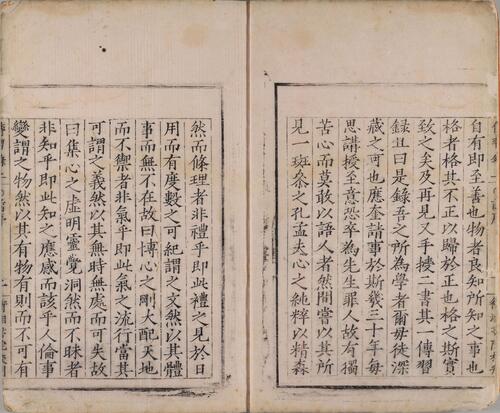 自有即至善也物者良知所知之事也
格者格其不正以歸於正也格之斯實
致之矣及再見又手授二書其一傳習
録且曰是録吾之所為學者爾毋徒深
藏之可也應奎請事於斯幾三十年毎
思講授至意恐卒為先生罪人故有獨
苦心而莫敢以語人者然間嘗以其所
見一斑叅之孔孟夫心之純粹以精森
然而條理者非禮乎即此禮之見於日
用而有度數之可紀謂之文然以其體
事而無不在故曰博心之剛大配天地
而不禦者非氣乎即此氣之流行當其
可謂之義然以其無時無處而可失故
曰集心之虛明靈覺洞然而不昧者
非知乎即此知之應感而該乎人倫事
變謂之物然以其有物有則而不可有